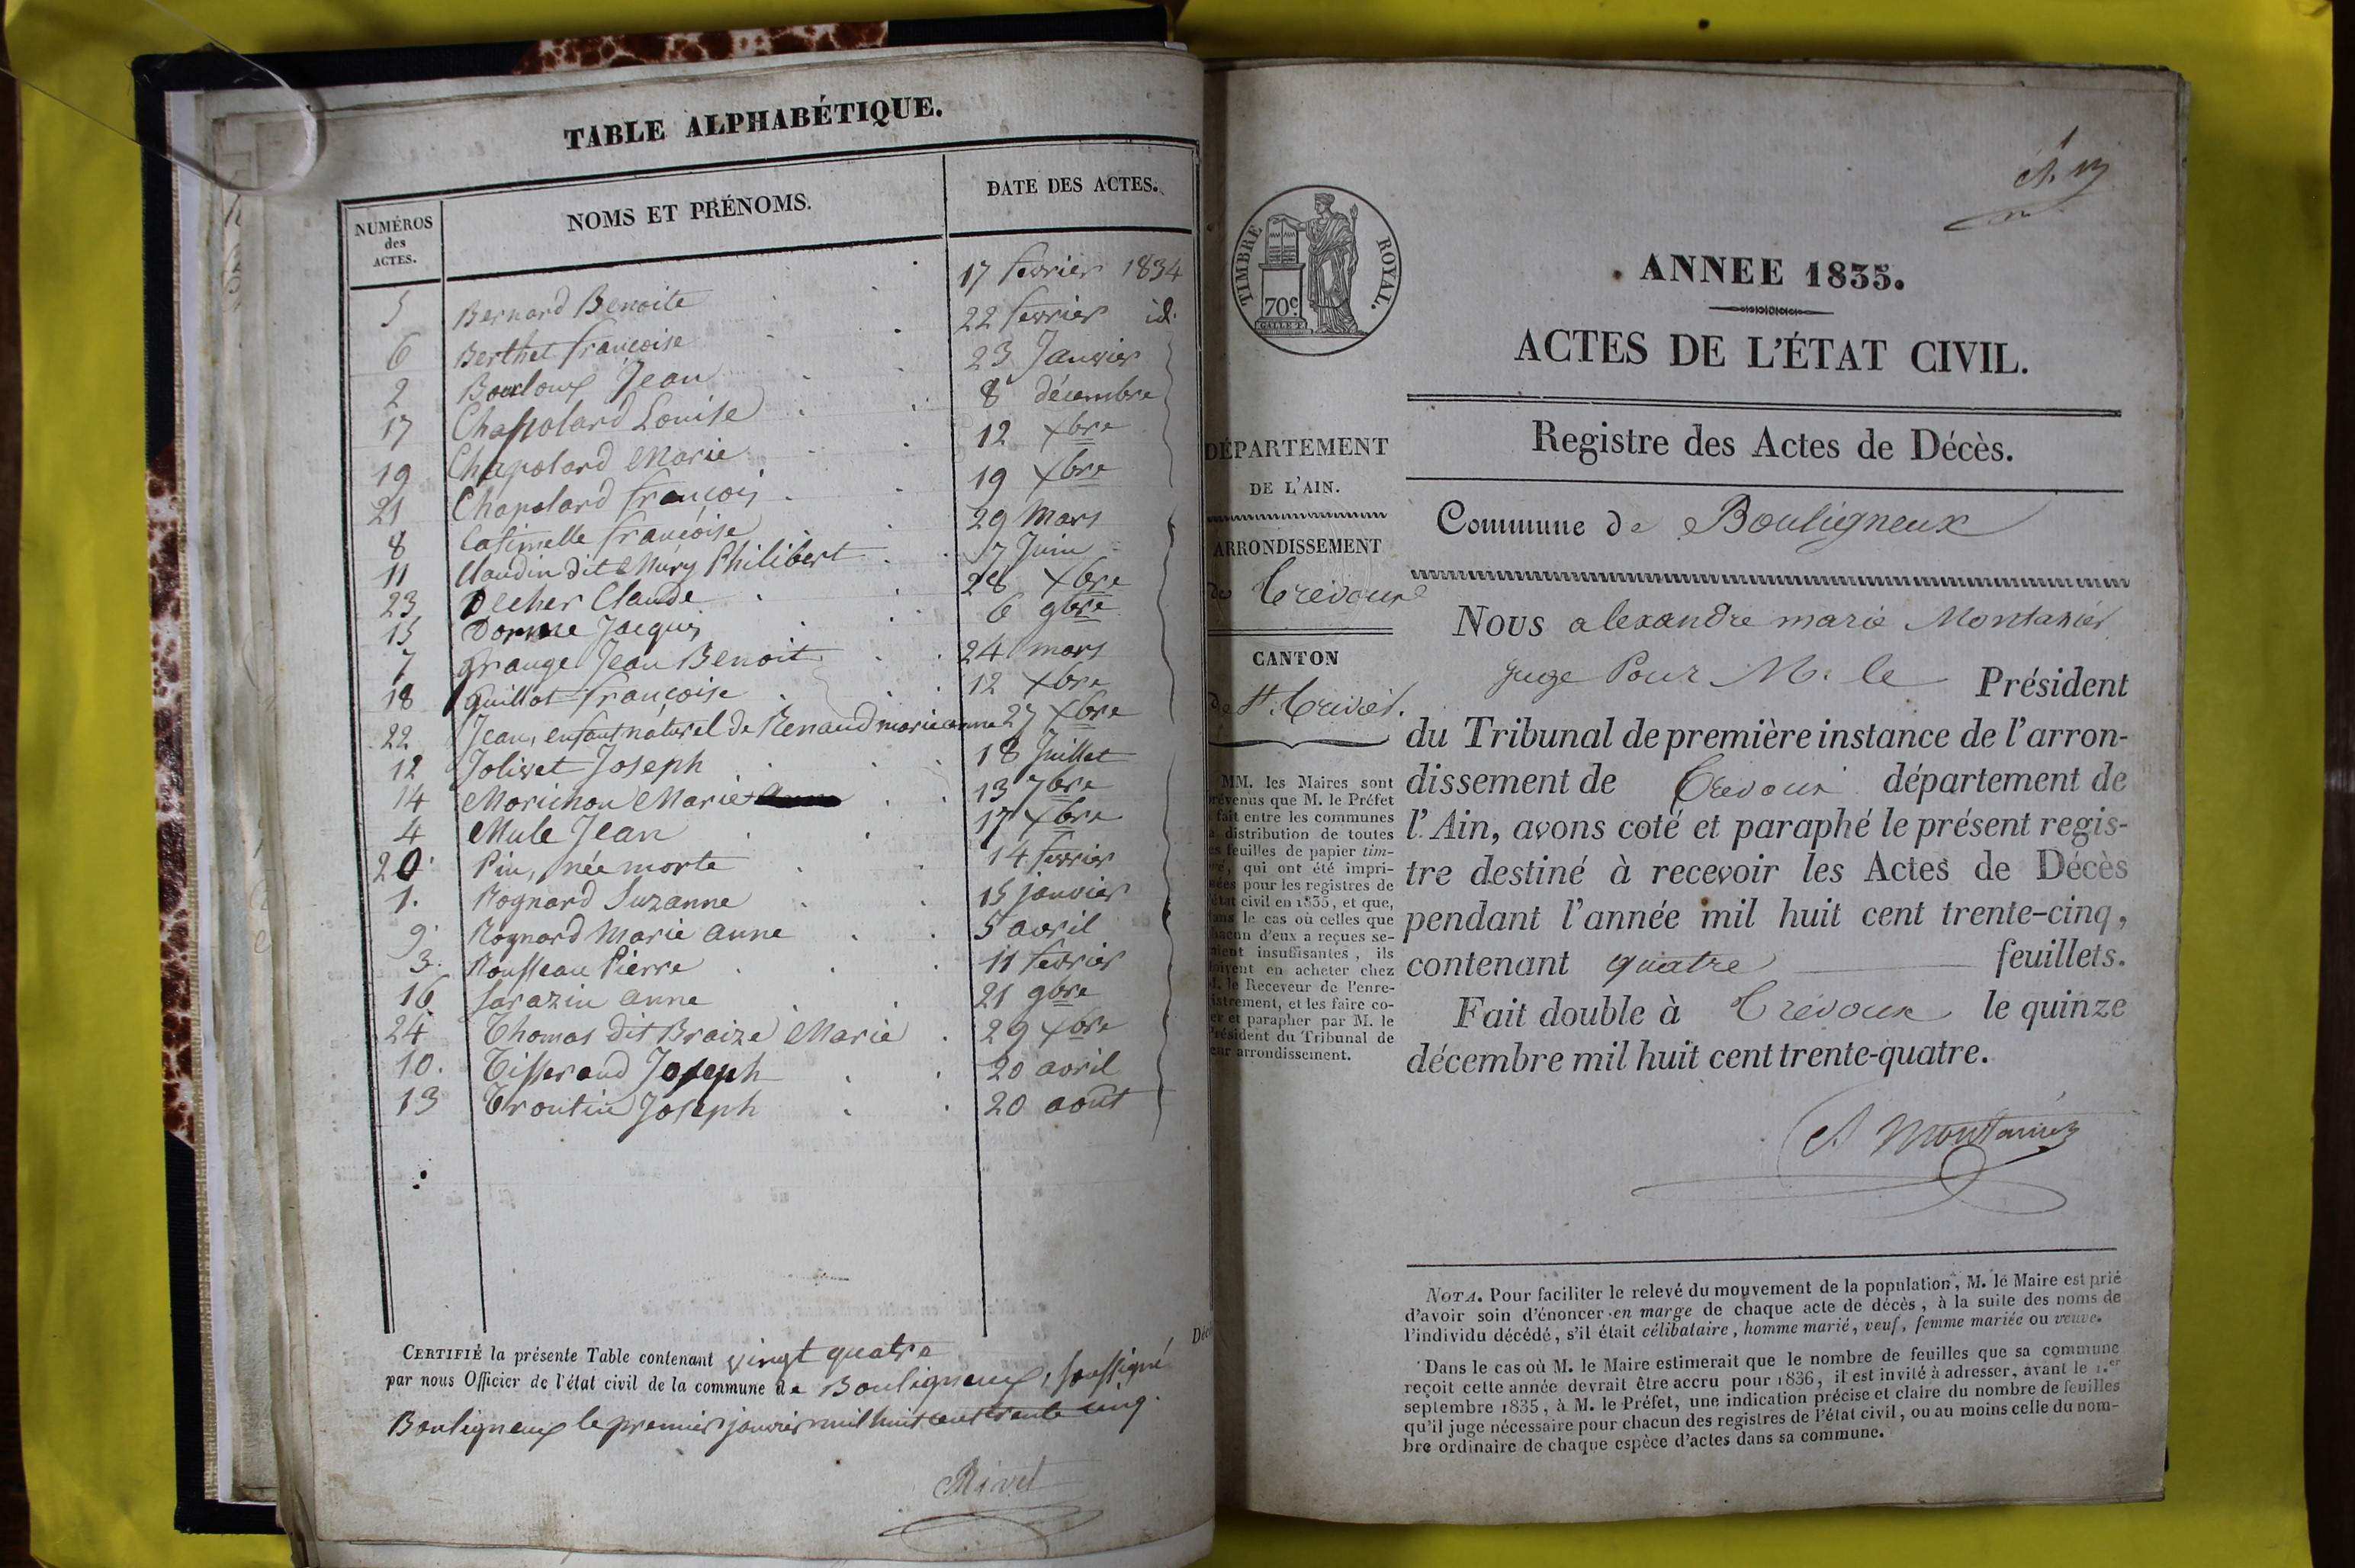 TABLE ALPHABÉTIQUE.
NUMÉROS des ACTES. NOMS ET PRÉNOMS. DATE DES ACTES.
5 Bernard Benoite 17 fevrier 1834
6 Berthet françoise 22 fevrier id.
2 Bouloux Jean 23 Janvier
17 Chapolard Louise 8 décembre
19 Chapolard Marie 12 xbre
21 Chapolard françois 19 xbre
8 françoise 29 Mars
11 Claudin dit Mury Philibert 17 Juin
23 Decher Claude 28 xbre
15 Jacques 6 9bre
7 Grange Jean Benoit 24 mars
18 Guillot françoise 12 xbre
22 Jean, enfant naturel de Renaud marie anne 27 xbre
12 Jolivet Joseph 18 Juillet
14 Morichon Marie 13 7bre
4 Mule Jean 14 fevrier
20 Pin, née morte 17 xbre
1. Rognard Suzanne 15 janvier
9. Rognard Marie anne 5 avril
3. Rousseau Pierre 11 fevrier
16 Sarazin anne 21 9bre
24 Thomas dit Braize Marie 29 xbre
10. Tisserand Joseph 20 avril
13 Troutin Joseph 20 aout
CERTIFIÉ la présente Table contenant vingt quatre
par nous Officier de l'état civil de la commune de Bouligneux, soussigné
Bouligneux le premier janvier mil huit cent trente cinq.
Rivet
TIMBRE ROYAL.
70c
ANNEE 1835.
ACTES DE L'ÉTAT CIVIL.
Registre des Actes de Décès.
DÉPARTEMENT
DE L'AIN.
ARRONDISSEMENT
de Trevoux
CANTON
de St. Trivier.
MM. les Maires sont
prévenus que M. le Préfet
fait entre les communes
la distribution de toutes
les feuilles de papier tim-
bré, qui ont été impri-
mées pour les registres de
l'état civil en 1835, et que,
dans le cas où celles que
chacun d'eux a reçues se-
raient insuffisantes, ils
doivent en acheter chez
M. le Receveur de l'enre-
gistrement, et les faire co-
ter et parapher par M. le
Président du Tribunal de
leur arrondissement.
Commune de Bouligneux
Nous alexandre marie Montanier
juge Pour M. le Président
du Tribunal de première instance de l'arron-
dissement de Trevoux département de
l'Ain, avons coté et paraphé le présent regis-
tre destiné à recevoir les Actes de Décès
pendant l'année mil huit cent trente-cinq,
contenant quatre feuillets.
Fait double à Trévoux le quinze
décembre mil huit cent trente-quatre.
A Montanier
NOTA. Pour faciliter le relevé du mouvement de la population, M. le Maire est prié
d'avoir soin d'énoncer en marge de chaque acte de décès, à la suite des noms de
l'individu décédé, s'il était célibataire, homme marié, veuf, femme mariée ou veuve.
Dans le cas où M. le Maire estimerait que le nombre de feuilles que sa commune
reçoit cette année devrait être accru pour 1836, il est invité à adresser, avant le 1.er
septembre 1835, à M. le Préfet, une indication précise et claire du nombre de feuilles
qu'il juge nécessaire pour chacun des registres de l'état civil, ou au moins celle du nom-
bre ordinaire de chaque espèce d'actes dans sa commune.